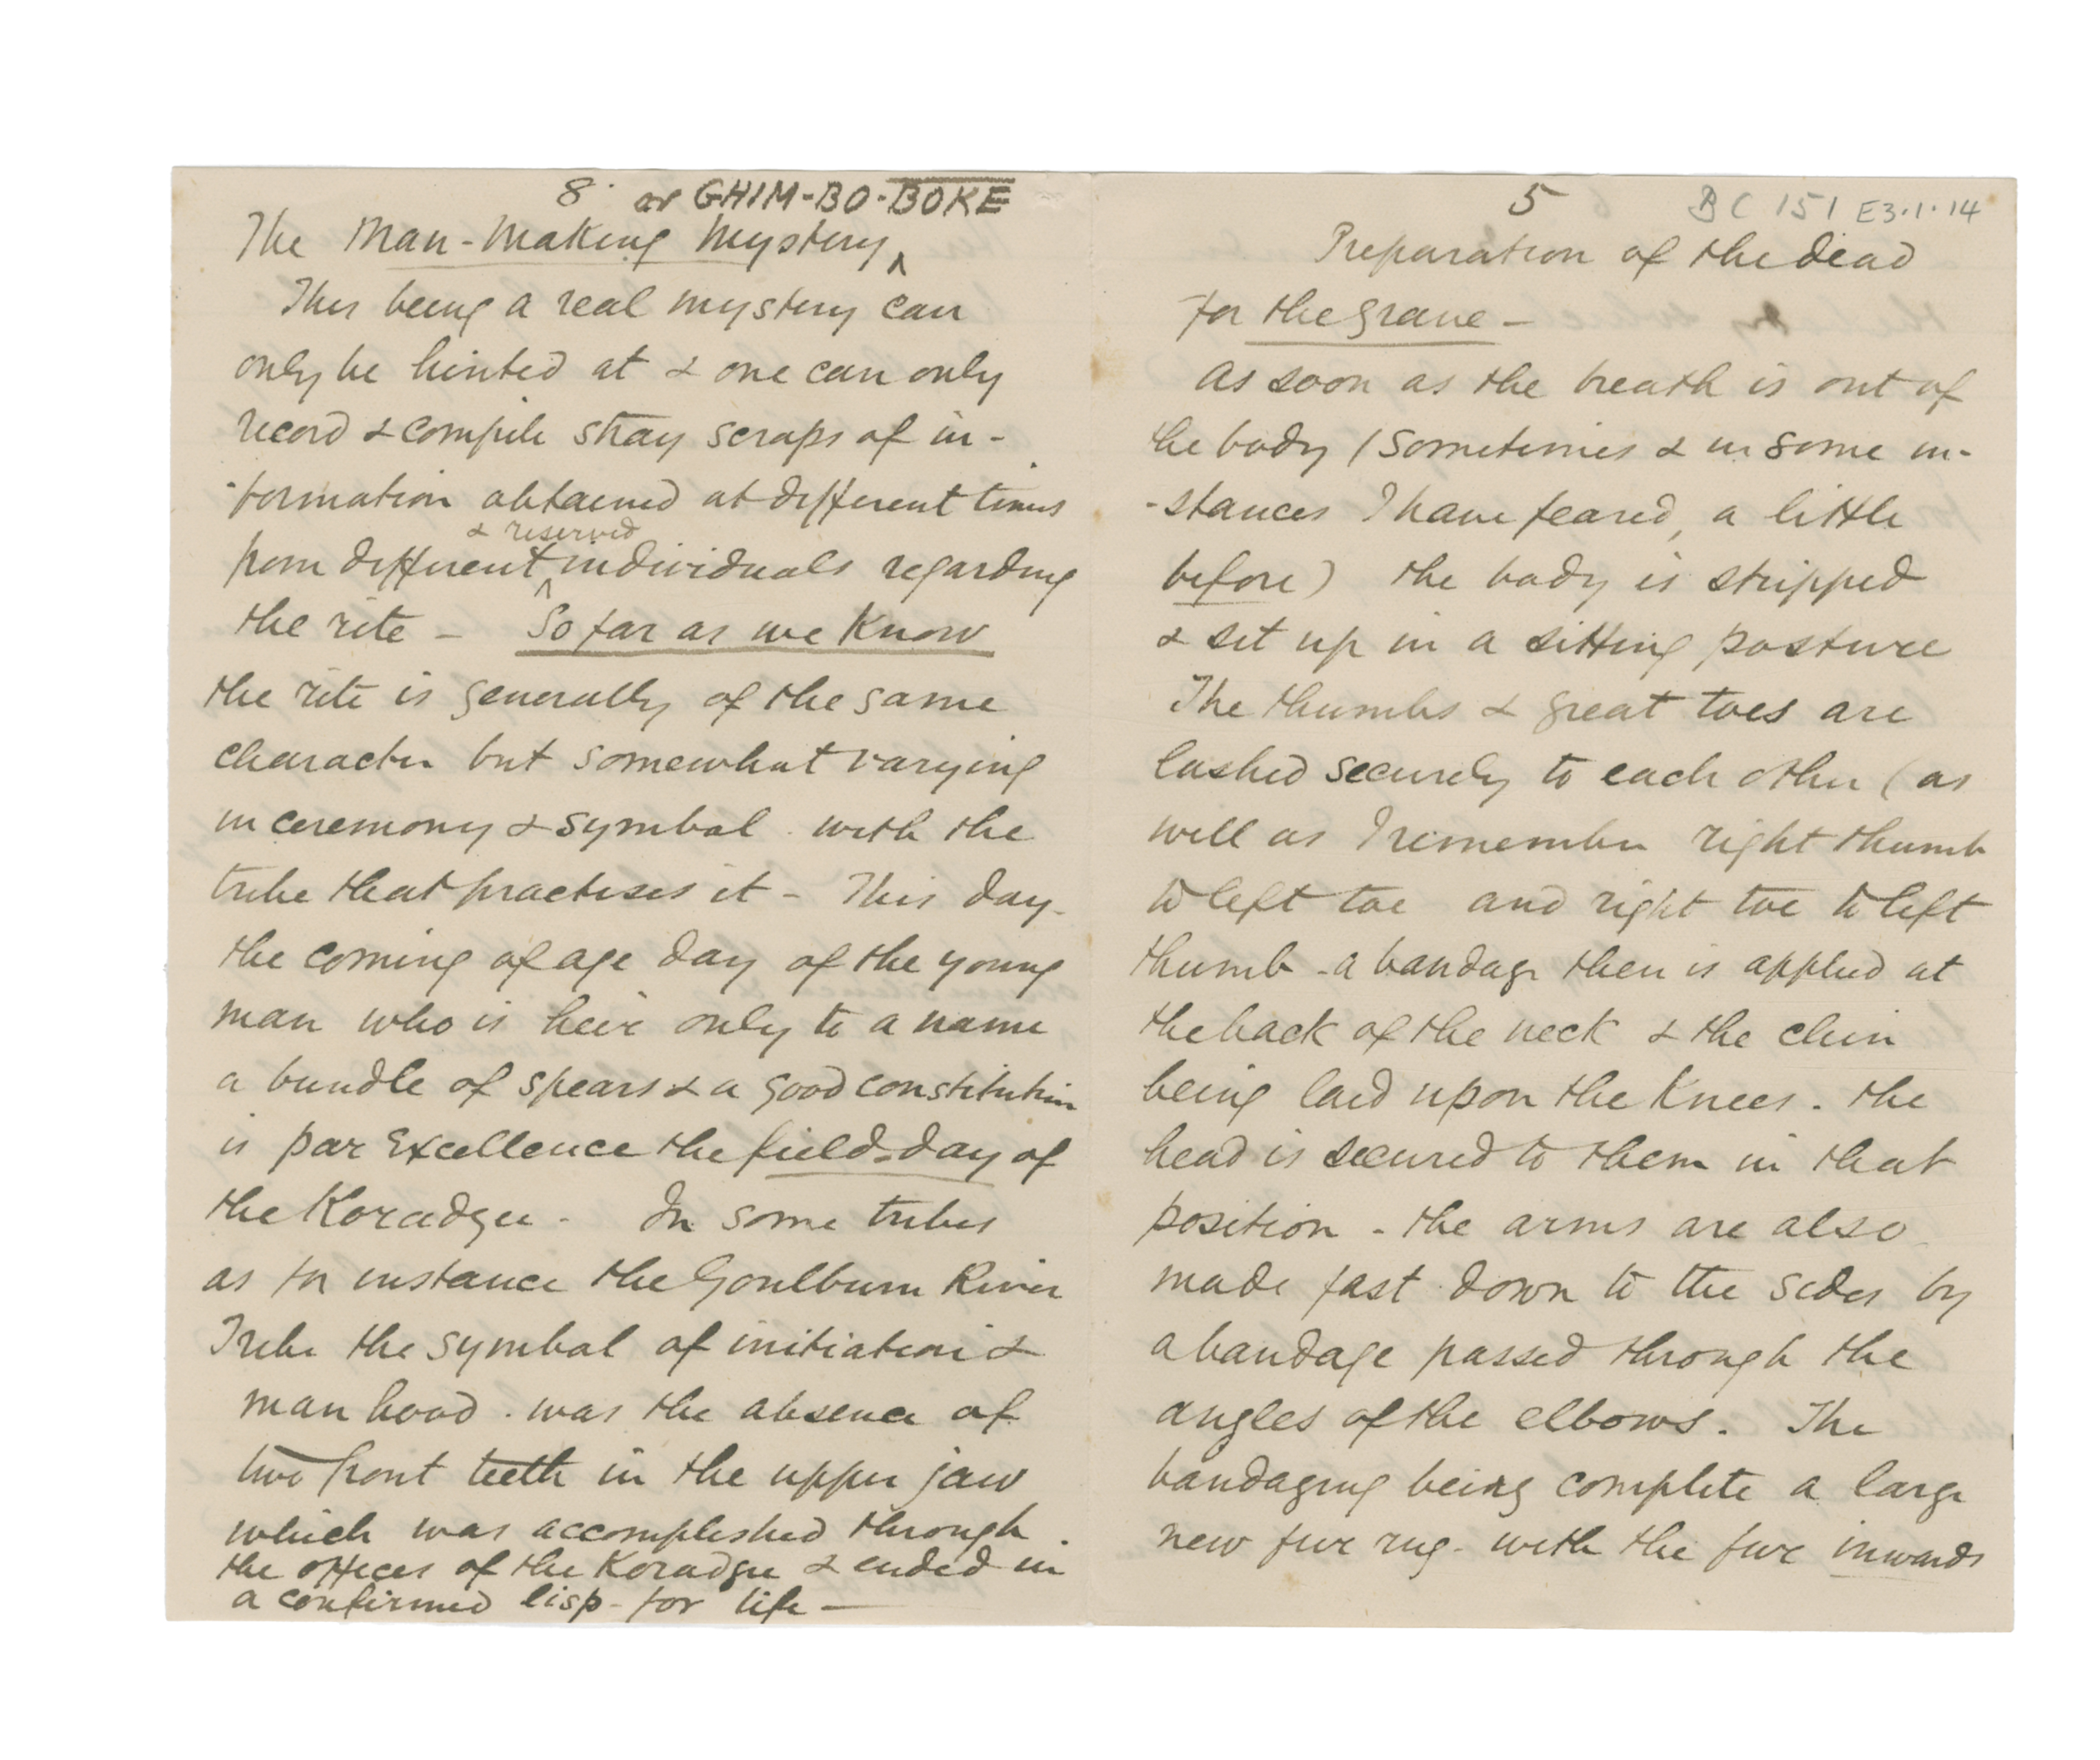 8. or GHIM-BO-BOKE
The Man-Making Mystery ^
This being a real mystery can
only be hinted at & one can only
record & compile stray scraps of in-
-formation obtained at different times
& reserved
from different ^ individuals regarding
the rite - So far as we Know
the rite is generally of the same
character but somewhat varying
in ceremony & symbol . with the
tribe that practises it - This day -
the coming of age day of the young
man who is heir only to a name
a bundle of spears & a good constitution
is par Excellence the field-day of
the Koradgee - In some tribes
as for instance the Goulburn River
Tribe the symbol of initiation &
man hood . was the absence of
two front teeth in the upper jaw
which was accomplished through
the offices of the Koradgee & ended in
a confirmed lisp - for life —
5 BC 151 E3.1.14
Preparation of the dead
for the grave -
As soon as the breath is out of
the body (sometimes & in some in-
-stances I have feared, a little
before) the body is stripped
& set up in a sitting posture
The thumbs & great toes are
lashed securely to each other (as
well as I remember right thumb
to left toe and right toe to left
thumb - a bandage then is applied at
the back of the neck & the chin
being laid upon the Knees . the
head is secured to them in that
position - the arms are also
made fast down to the sides by
a bandage passed through the
angles of the elbows . The
bandaging being complete a large
new fur rug - with the fur inwards